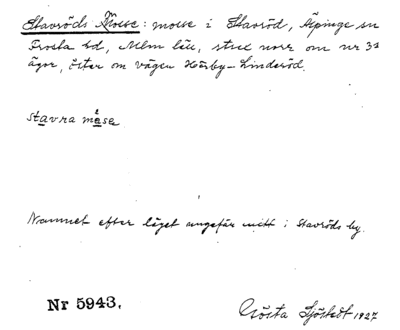 Stavröds Mosse: mosse i Stavröd, Äspinge sn
Frosta hd, Mlm län, strax norr om nr 3s
ägor, öster om vägen Hörby–Linderöd.
stavra måse
Namnet efter läget ungefär mitt i Stavröds by.
Nr 5943.
Gösta Sjöstedt 1927